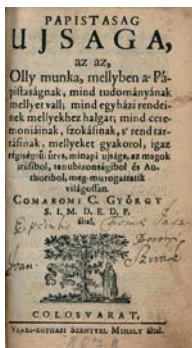 PAPISTASAG
UJSAGA,
az az,
Olly munka, mellyben a' Pá-
pistaságnak, mind tudományának
mellyet vall; mind egyházi rendei-
nek mellyekhez halgat; mind cere-
moniáinak, szokásinak, s' rendtar-
tásinak, mellyeket gyakorol, igaz
régiségtül üres, minapi ujsága, az magok
irásiból, tanubizonságiból és Au-
thoriból, meg-mutogattatik
világossan.
COMAROMI C. GYÖRGY
S. I. M. D. E. D. P.
által.
COLOSVARAT,
VERES-EGYHAZI SZENTYEL MIHALY által.